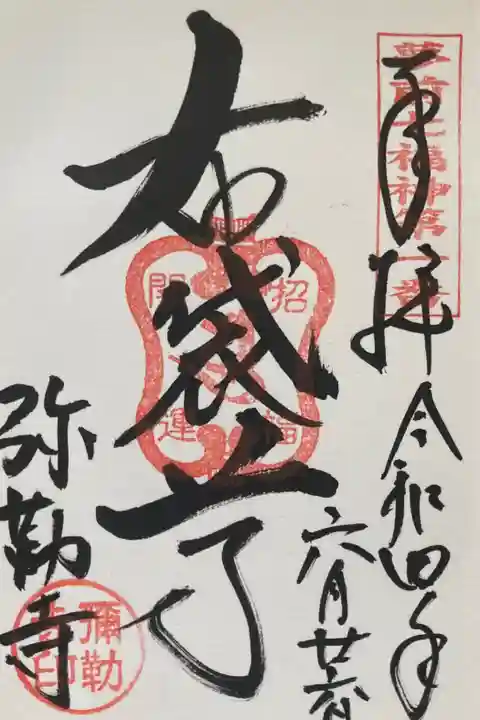 夢前七福神第一番
奉拝
令和四年
六月
布袋尊
招福
開運
弥勒寺
彌勒
寺印